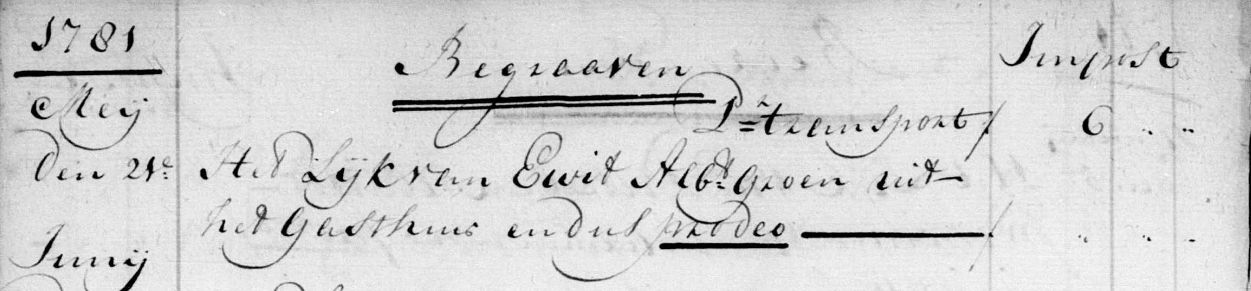 1781 Begraaven Impost
Meij Pr. transport / 6 " "
den 21e. Het Lijk van Ewit Albt. Groen uit
het Gasthuis en dus prodeo / " " "
Junij